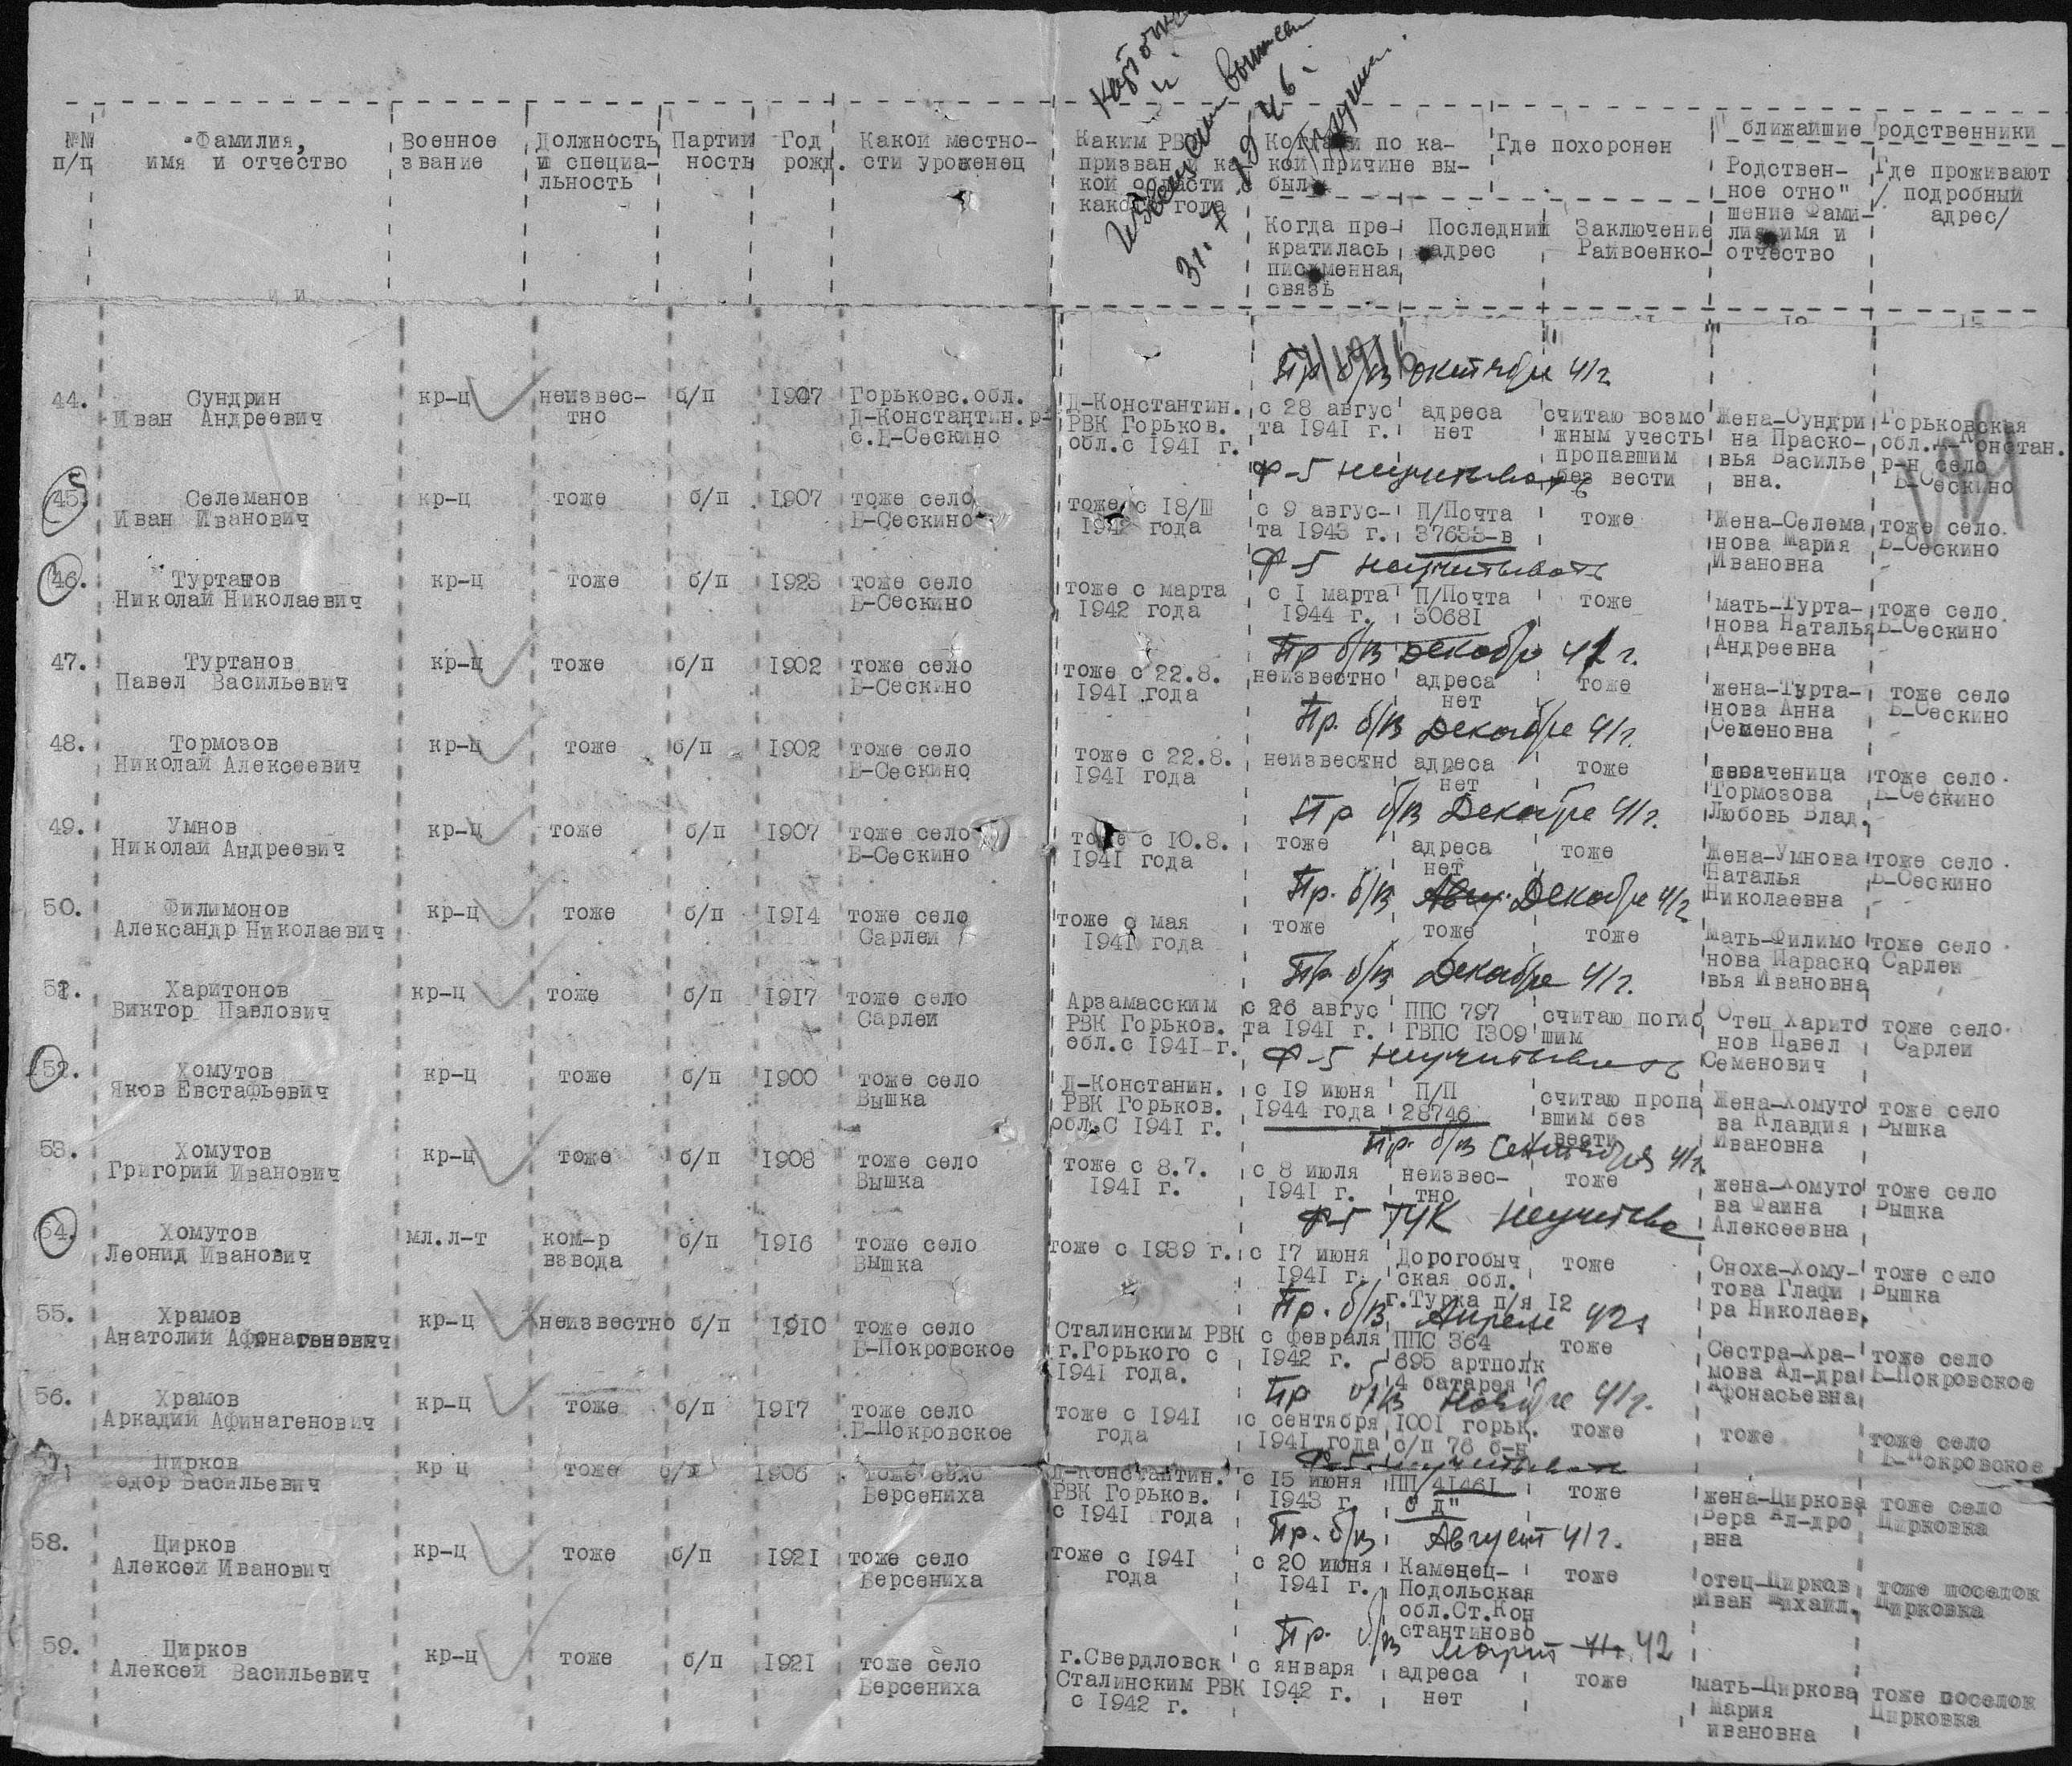 31.7.1946.
№№ п/п
Фамилия, имя и отчество
Военное звание
Должность и специальность
Партийность
Год рожд.
Какой местности уроженец
Каким РВК призван
Где похоронен
Когда прекратилась письменная связь
Последний адрес
Заключение Райвоенко-
ближайшие родственники
Родственное отно" шение Фамилия имя и отчество
Где проживают /подробный адрес/
Пр б/в октябре 41г.
44. Сундрин Иван Андреевич кр-ц неизвестно б/п 1907 Горьковс.обл. Д-Константин.р- с.Б-Сескино Д-Константин. РВК Горьков. обл.с 1941 г. с 28 августа 1941 г. адреса нет считаю возможным учесть пропавшим без вести Жена-Сундрина Прасковья Васильевна. Горьковская обл.Д-Констан. р-н село Б-Сескино
Ф-5 неучитывать
45. Селеманов Иван Иванович кр-ц тоже б/п 1907 тоже село Б-Сескино тоже с 18/III 1942 года с 9 августа 1943 г. П/Почта 37633-в тоже Жена-Селеманова Мария Ивановна тоже село Б-Сескино
Ф-5 неучитывать
46. Туртанов Николай Николаевич кр-ц тоже б/п 1923 тоже село Б-Сескино тоже с марта 1942 года с 1 марта 1944 г. П/Почта 30681 тоже мать-Туртанова Наталья Андреевна тоже село Б-Сескино
Пр б/в декабре 41г.
47. Туртанов Павел Васильевич кр-ц тоже б/п 1902 тоже село Б-Сескино тоже с 22.8. 1941 года неизвестно адреса нет тоже жена-Туртанова Анна Семеновна тоже село Б-Сескино
Пр. б/в Декабре 41г.
48. Тормозов Николай Алексеевич кр-ц тоже б/п 1902 тоже село Б-Сескино тоже с 22.8. 1941 года неизвестно адреса нет тоже Тормозова Любовь Влад. тоже село Б-Сескино
Пр б/в Декабре 41г.
49. Умнов Николай Андреевич кр-ц тоже б/п 1907 тоже село Б-Сескино тоже с 10.8. 1941 года тоже адреса нет тоже Жена-Умнова Наталья Николаевна тоже село Б-Сескино
Пр. б/в Декабре 41г
50. Филимонов Александр Николаевич кр-ц тоже б/п 1914 тоже село Сарлеи тоже с мая 1941 года тоже тоже тоже Мать-Филимонова Парасковья Ивановна тоже село Сарлеи
Пр. б/в Декабре 41г.
51. Харитонов Виктор Павлович кр-ц тоже б/п 1917 тоже село Сарлеи Арзамасским РВК Горьков. обл.с 1941-г. с 26 августа 1941 г. ППС 797 ГВПС 1309 считаю погибшим Отец Харитонов Павел Семенович тоже село Сарлеи
Ф-5 неучитывать
52. Хомутов Яков Евстафьевич кр-ц тоже б/п 1900 тоже село Вышка Д-Констанин. РВК Горьков. обл.С 1941 г. с 19 июня 1944 года П/П 28746 считаю пропавшим без вести Жена-Хомутова Клавдия Ивановна тоже село Вышка
Пр. б/в Сентября 41г.
53. Хомутов Григорий Иванович кр-ц тоже б/п 1908 тоже село Вышка тоже с 8.7. 1941 г. с 8 июля 1941 г. неизвестно тоже жена-Хомутова Фаина Алексеевна тоже село Вышка
Ф-5 ГУК
54. Хомутов Леонид Иванович мл.л-т ком-р взвода б/п 1916 тоже село Вышка тоже с 1939 г. с 17 июня 1941 г. Дорогобычская обл. г.Турка п/я 12 тоже Сноха-Хомутова Глафира Николаев. тоже село Вышка
Пр. б/в Апреле 42г
55. Храмов Анатолий Афонагенович кр-ц неизвестно б/п 1910 тоже село Б-Покровское Сталинским РВК г.Горького с 1941 года. с февраля 1942 г. ППС 364 695 артполк 4 батарея тоже Сестра-Храмова Ал-дра Афонасьевна тоже село Б-Покровское
Пр б/в Ноябре 41г.
56. Храмов Аркадий Афинагенович кр-ц тоже б/п 1917 тоже село Б-Покровское тоже с 1941 года с сентября 1941 года 1001 горьк. с/п 76 б-н тоже тоже тоже село Б-Покровское
Ф-5 неучитывать
57. Цирков едор Васильевич кр ц тоже б/п 1906 тоже село Берсениха Д-Константин. РВК Горьков. с 1941 года с 15 июня 1943 г. ПП/41461 "Д" тоже жена-Циркова Вера Ал-дровна тоже село Цирковка
Пр. б/в Август 41г.
58. Цирков Алексей Иванович кр-ц тоже б/п 1921 тоже село Берсениха тоже с 1941 года с 20 июня 1941 г. Каменец-Подольская обл.Ст.Константиново тоже отец-Цирков Иван Михайл. тоже поселок Цирковка
Пр. б/в Март 41г. 42
59. Цирков Алексей Васильевич кр-ц тоже б/п 1921 тоже село Берсениха г.Свердловск Сталинским РВК с 1942 г. с января 1942 г. адреса нет тоже мать-Циркова Мария ивановна тоже поселок Цирковка